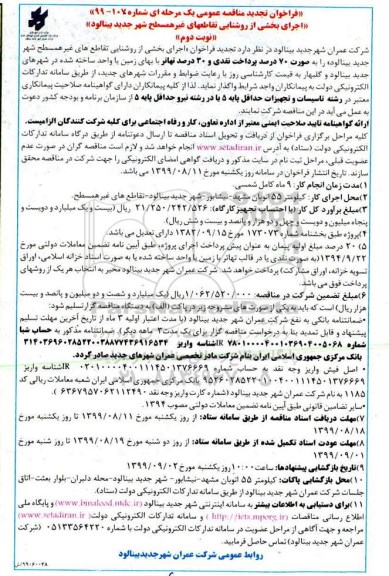 «فراخوان تجدید مناقصه عمومی یک مرحله ای شماره ۱۰۷-۹۹»
«اجرای بخشی از روشنایی تقاطعهای غیرهمسطح شهر جدید بینالود»
«نوبت دوم»
شرکت عمران شهر جدید بینالود در نظر دارد تجدید فراخوان «اجرای بخشی از روشنایی تقاطع های غیرهمسطح شهر
جدید بینالود» را به صورت ۷۰ درصد پرداخت نقدی و ۳۰ درصد تهاتر با بهای زمین یا واحد ساخته شده در شهرهای
جدید بینالود و گلبهار به قیمت کارشناسی روز با رعایت ضوابط و مقررات شهرهای جدید، از طریق سامانه تدارکات
الکترونیکی دولت به پیمانکاران واجد شرایط واگذار نماید. لذا از کلیه پیمانکاران دارای گواهینامه صلاحیت پیمانکاری
معتبر در رشته تاسیسات و تجهیزات حداقل پایه ۵ یا در رشته نیرو حداقل پایه ۵ از سازمان برنامه و بودجه کشور دعوت
به عمل می آید در این مناقصه شرکت نمایند.
ارائه گواهینامه تایید صلاحیت ایمنی معتبر از اداره تعاون، کار و رفاه اجتماعی برای کلیه شرکت کنندگان الزامیست.
کلیه مراحل برگزاری فراخوان از دریافت و تحویل اسناد مناقصه تا ارسال دعوتنامه از طریق درگاه سامانه تدارکات
الکترونیکی دولت (ستاد) به آدرس www.setadiran.ir انجام خواهد شد و لازم است مناقصه گران در صورت عدم
عضویت قبلی، مراحل ثبت نام در سایت مذکور و دریافت گواهی امضای الکترونیکی را جهت شرکت در مناقصه محقق
سازند. تاریخ انتشار فراخوان در سامانه روز یکشنبه مورخ ۱۳۹۹/۰۸/۱۱ می باشد.
۱)مدت زمان انجام کار: ۹ ماه کامل شمسی
۲)محل اجرای کار: کیلومتر ۵۵ اتوبان مشهد-نیشابور- شهر جدید بینالود-تقاطع های غیرهمسطح.
۳)مبلغ برآورد کل کار (با احتساب تجهیز کارگاه): ۲۱/۲۵۰/۲۴۲/۵۲۶ ریال (بیست و یک میلیارد و دویست و
پنجاه میلیون و دویست و چهل و دو هزار و پانصد و بیست و شش ریال)
۴)پروژه طبق بخشنامه شماره ۱۷۳۰۷۳ مورخ ۱۳۸۲/۰۹/۱۵ دارای تعدیل می باشد.
۵) ۲۰ درصد مبلغ اولیه پیمان به عنوان پیش پرداخت اجرای پروژه، طبق آیین نامه تضمین معاملات دولتی مورخ
۱۳۹۴/۹/۲۲ (به صورت نقدی یا در قالب تهاتر با زمین یا واحد ساخته شده یا به صورت اسناد خزانه اسلامی، اوراق
تسویه خزانه، اوراق مشارکت) پرداخت خواهد شد. شرکت عمران شهر جدید بینالود مخیر به انتخاب هر یک از روشهای
پرداخت فوق می باشد.
۶)مبلغ تضمین شرکت در مناقصه: ۱/۰۶۲/۵۲۰/۰۰۰ ریال (یک میلیارد و شصت و دو میلیون و پانصد و بیست
هزار ریال) است که باید به یکی از صورت های مشروحه زیر در پاکت (الف) به دستگاه مناقصه گزار تسلیم شود:
*ضمانتنامه بانکی به نفع شرکت عمران شهر جدید بینالود (با مدت اعتبار اولیه ۳ ماه از تاریخ آخرین مهلت تسلیم
پیشنهاد و قابل تمدید بنا به درخواست مناقصه گزار برای یک مدت ۳ ماهه دیگر). ضمانتنامه مذکور به حساب شبا
بانک مرکزی جمهوری اسلامی ایران بنام شرکت مادر تخصصی عمران شهرهای جدید صادر گردد.
* اصل فیش واریز وجه نقد به حساب شماره
۱۱۸۵ به نام شرکت عمران شهر جدید بینالود
*سایر تضامین قانونی طبق آیین نامه تضمین معاملات دولتی مصوب ۱۳۹۴.
۷)مهلت دریافت اسناد مناقصه از طریق سامانه ستاد: از روز یکشنبه مورخ ۱۳۹۹/۰۸/۱۱ تا روز یکشنبه مورخ
۱۳۹۹/۰۸/۱۸
۸)مهلت عودت اسناد تکمیل شده از طریق سامانه ستاد: از روز دو شنبه مورخ ۱۳۹۹/۰۸/۱۹ تا روز شنبه مورخ
۱۳۹۹/۰۹/۰۱
۹)تاریخ بازگشایی پیشنهادها: ساعت ۱۰:۰۰ روز یکشنبه مورخ ۱۳۹۹/۰۹/۰۲
۱۰)محل بازگشایی پاکات: کیلومتر ۵۵ اتوبان مشهد-نیشابور- شهر جدید بینالود-محله دلبران-بلوار بعثت-اتاق
جلسات شرکت عمران شهر جدید بینالود از طریق سامانه تدارکات الکترونیکی دولت (ستاد).
۱۱)برای دستیابی به اطلاعات بیشتر به سامانه اینترنتی شهر جدید بینالود (www.binaloud.ntdc.ir) و پایگاه ملی
اطلاع رسانی مناقصات (http://iets.mporg.ir) و سامانه تدارکات الکترونیکی دولت (www.setadiran.ir)
مراجعه و جهت آگاهی از مراحل عضویت در سامانه تدارکات الکترونیکی دولت با شماره ۰۵۱۳۳۵۶۴۲۲۰ (شرکت
عمران شهر جدید بینالود) تماس حاصل فرمایید.
روابط عمومی شرکت عمران شهر جدید بینالود